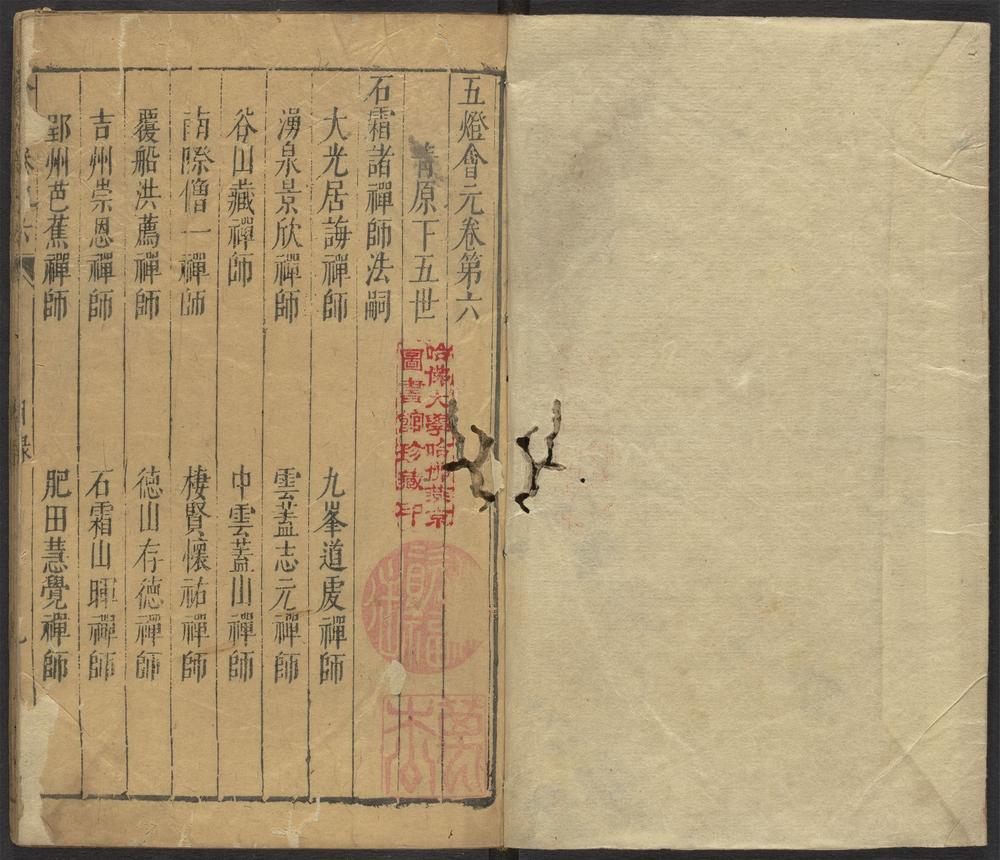 五燈會元卷第六
青原下五世
石霜諸禪師法嗣
大光居誨禪師 九峯道虔禪師
湧泉景欣禪師 雲蓋志元禪師
谷山藏禪師 中雲蓋山禪師
南際僧一禪師 棲賢懷祐禪師
覆船洪薦禪師 德山存德禪師
吉州崇恩禪師 石霜山暉禪師
郢州芭蕉禪師 肥田慧覺禪師
卷之六 目錄
哈佛大學哈佛燕京
圖書館珍藏印